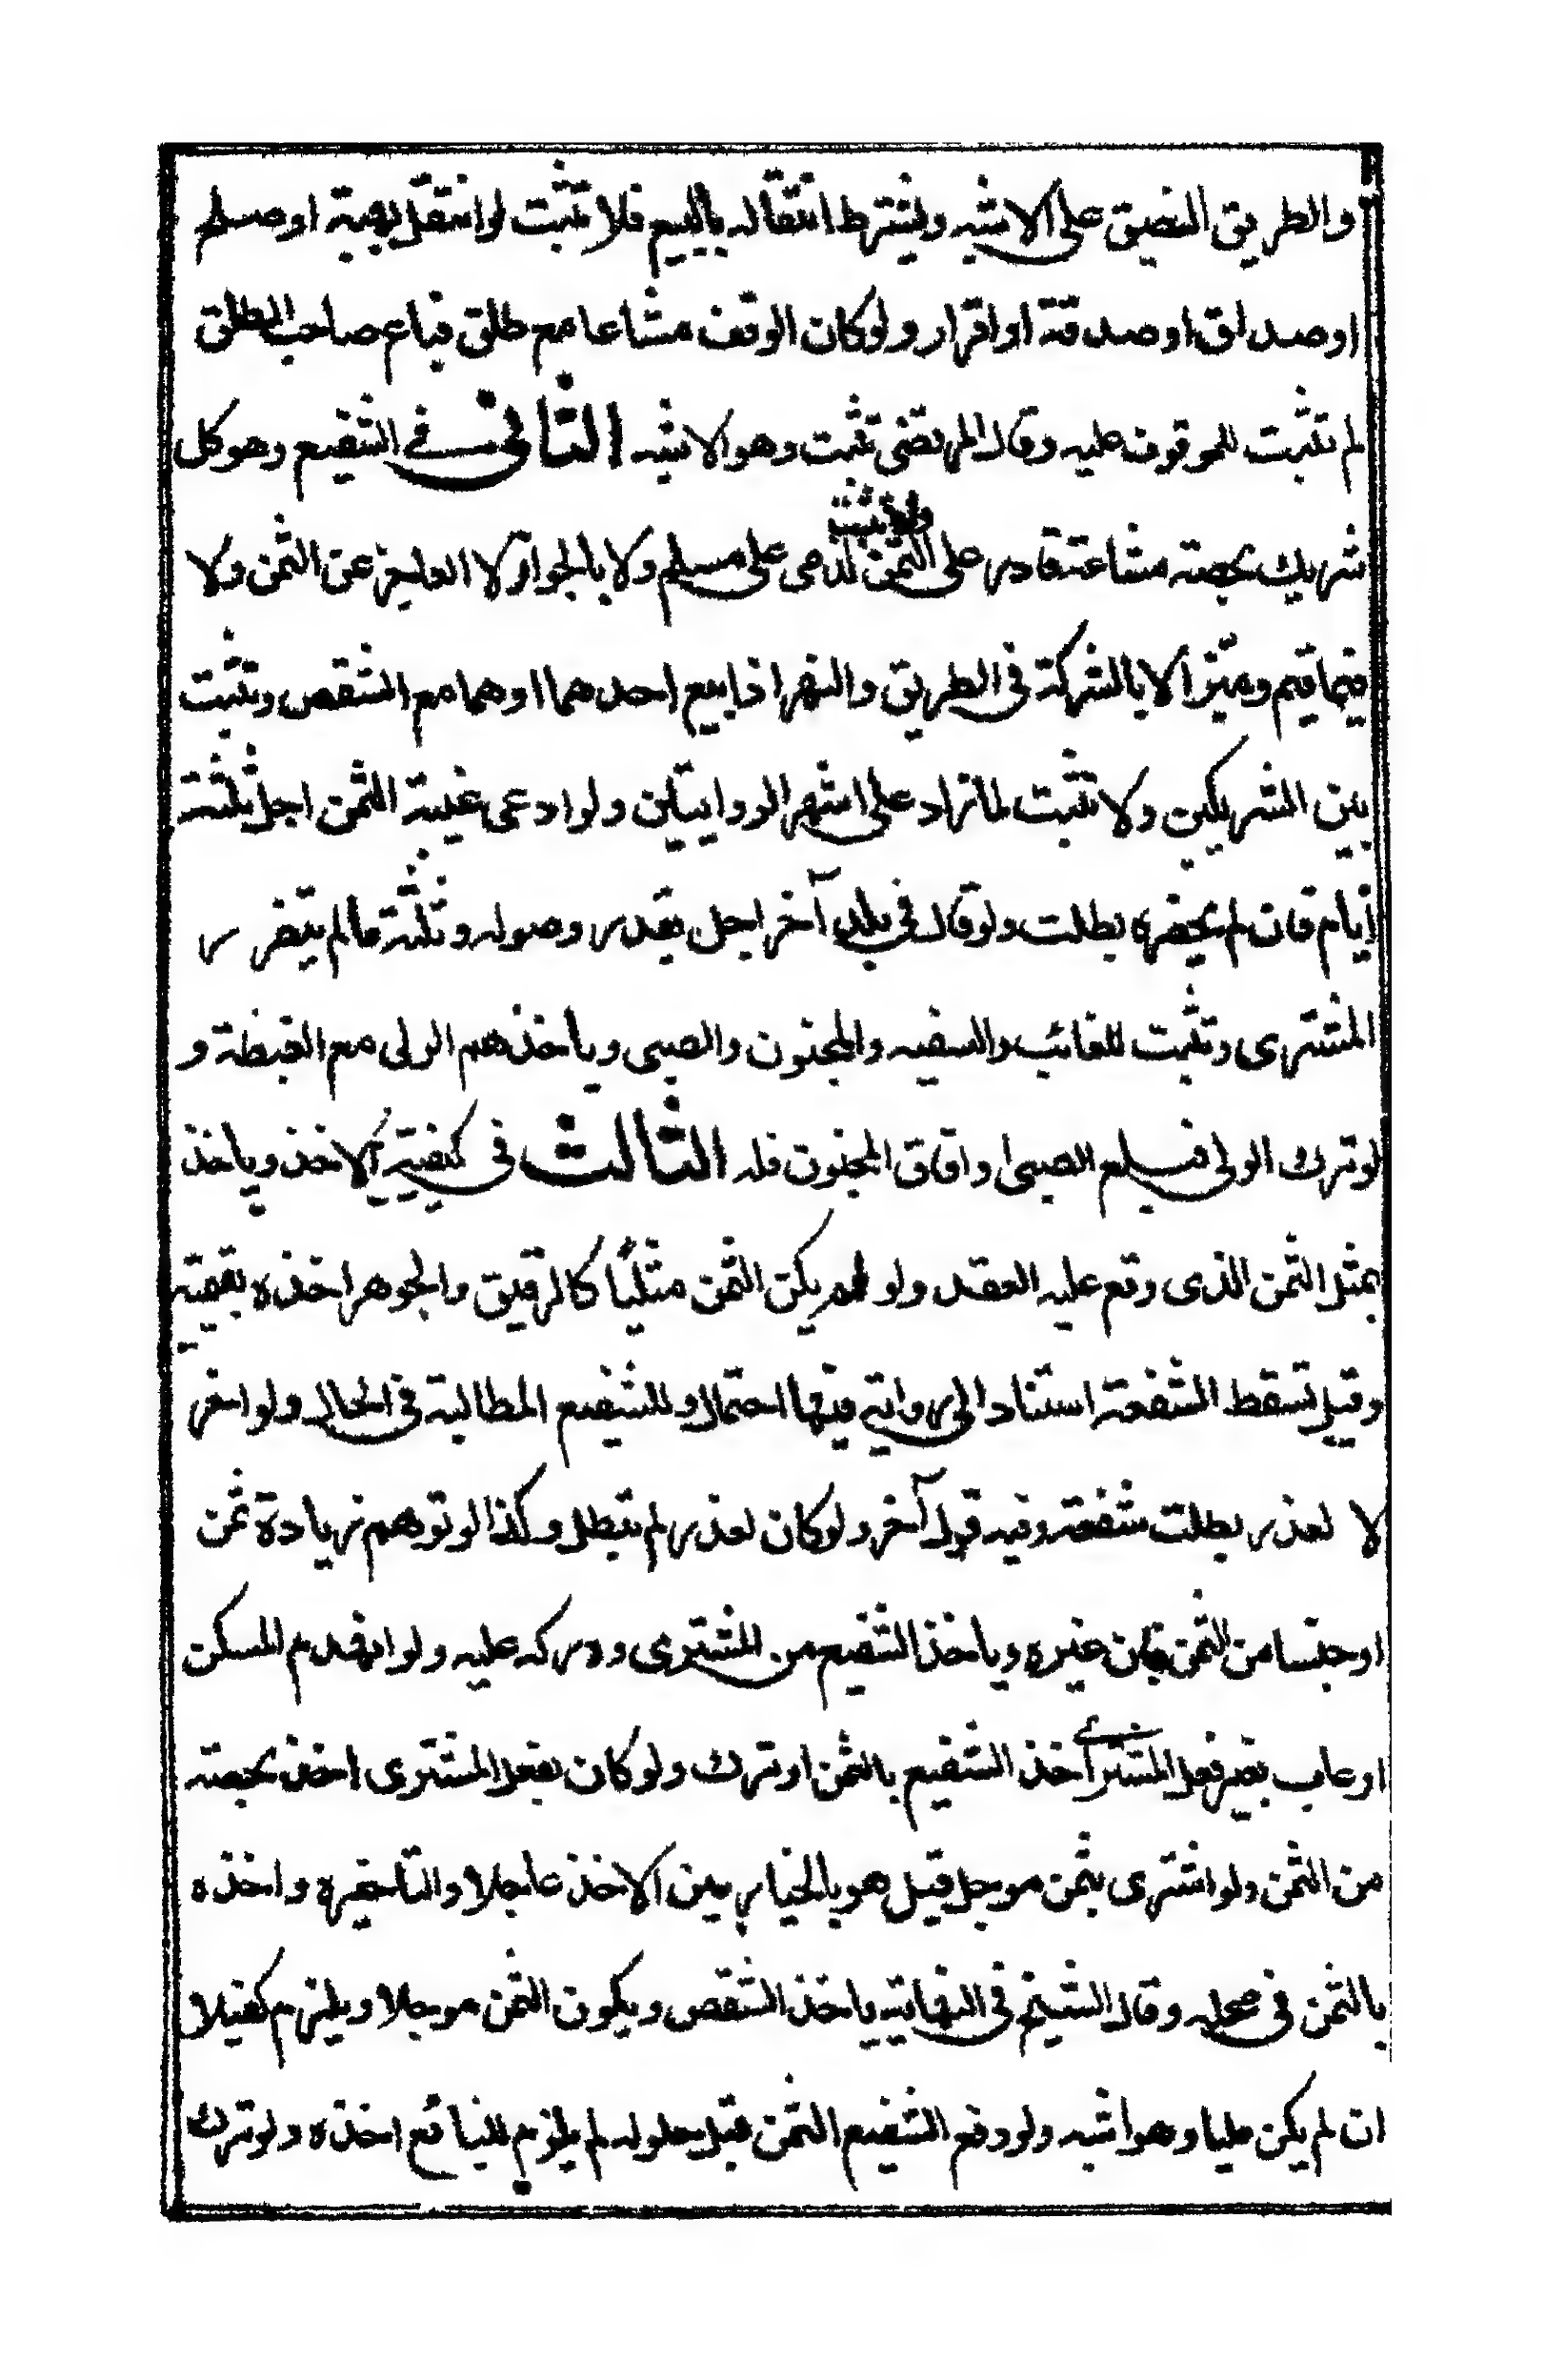 والطريق الضيق على الاشبه ويشترط انتقاله بالبيع فلا تثبت لو انتقل بهبة او صلح
او صداق او صدقة او اقرار ولو كان الوقف مشاعا مع طلق فباع صاحب الطلق
لم تثبت للموقوف عليه وقال المرتضى تثبت وهو الاشبه الثانى فى الشفيع وهو كل
شريك بحصة مشاعة قادر على الثمن ولا تثبت لذمى على مسلم ولا بالجوار ولا العاجز عن الثمن ولا
فيما قسم وميز الا بالشركة فى الطريق والنهر اذا بيع احدهما او هما مع الشقص وتثبت
بين الشريكين ولا تثبت لما زاد على اشهر الروايتين ولو ادعى غيبة الثمن اجل ثلثة
أيام فان لم يحضره بطلت ولو قال فى بلد آخر اجل بقدر وصوله وثلثة ما لم يتضرر
المشترى وتثبت للغائب والسفيه والمجنون والصبى ويأخذ هم الولى مع الغبطة و
لو ترك الولى فبلغ الصبى او افاق المجنون فله الثالث فى كيفية الاخذ ويأخذ
بمثل الثمن الذى وقع عليه العقد ولو لم يكن الثمن مثليًا كالرقيق والجوهر اخذه بقيمته
وقيل تسقط الشفعة استنادا الى رواية فيها احتمال وللشفيع المطالبة فى الحال ولو اخر
لا لعذر بطلت شفعته وفيه قول آخر ولو كان لعذر لم تبطل وكذا لو توهم زيادة ثمن
او جنسا من الثمن فبان غيره ويأخذ الشفيع من المشترى ودركه عليه ولو انهدم المسكن
او عاب بغير فعل المشترى أخذ الشفيع بالثمن او ترك ولو كان بفعل المشترى اخذ بحصته
من الثمن ولو اشترى بثمن موجل قيل هو بالخيار بين الاخذ عاجلا والتأخيره واخذه
بالثمن فى محله وقال الشيخ فى النهاية يأخذ الشقص ويكون الثمن موجلا ويلزم كفيلا
ان لم يكن مليا وهو اشبه ولو دفع الشفيع الثمن قبل حلوله لم يلزم للبائع اخذه ولو ترك